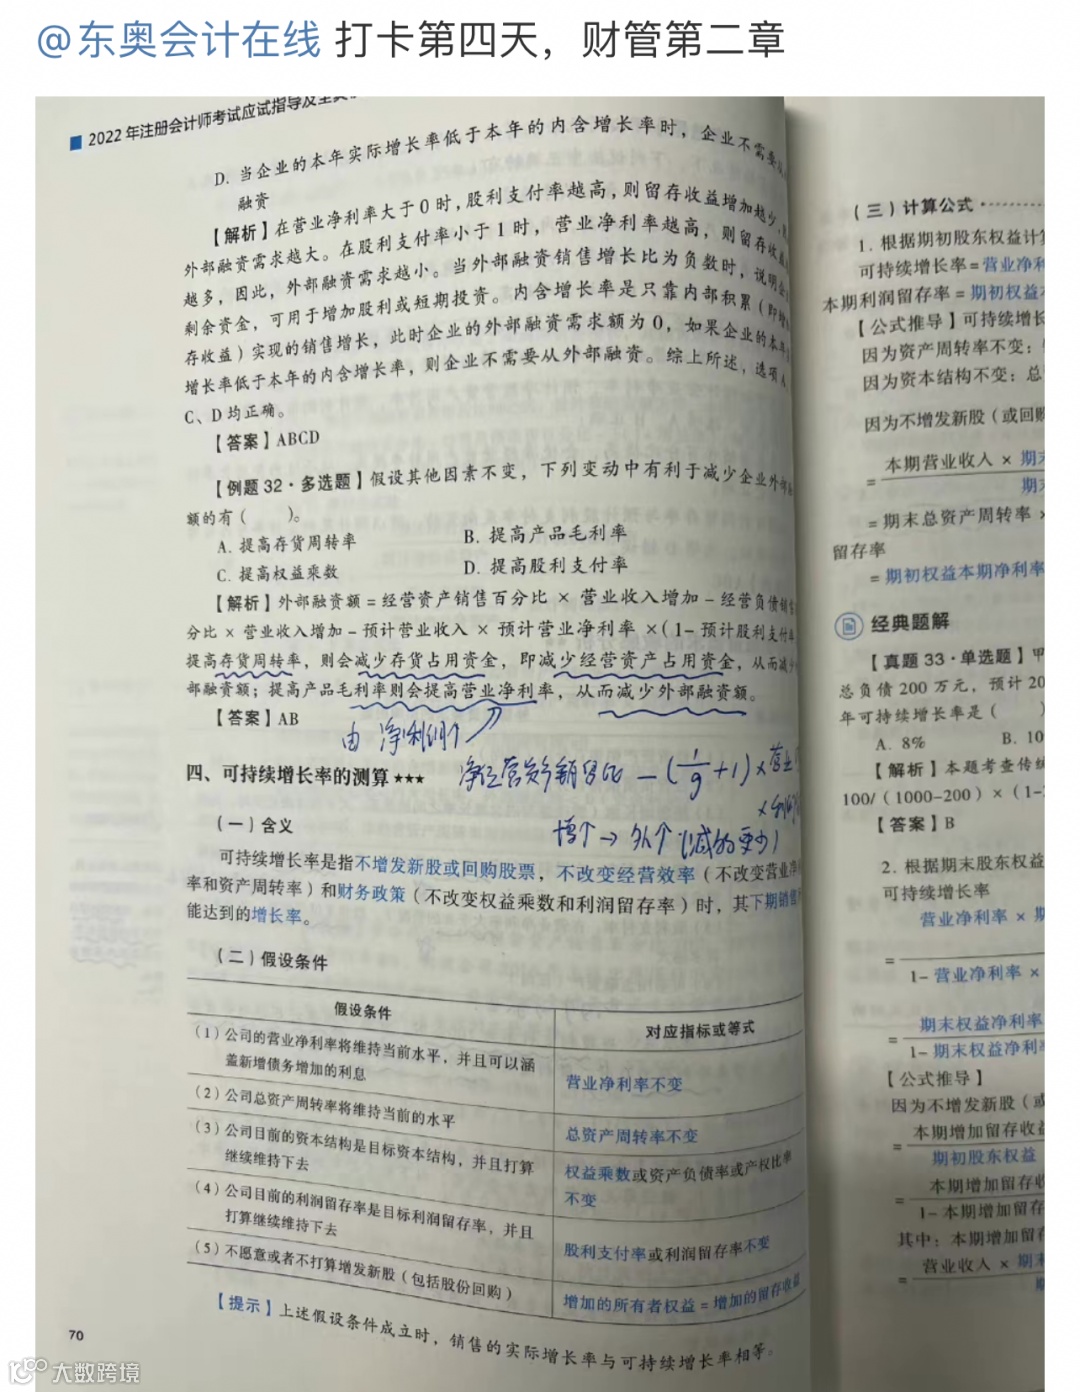 @东奥会计在线 打卡第四天，财管第二章
2022年注册会计师考试应试指导及全真
D. 当企业的本年实际增长率低于本年的内含增长率时，企业不需要从
融资
【解析】在营业净利率大于0时，股利支付率越高，则留存收益增加越少，
外部融资需求越大。在股利支付率小于1时，营业净利率越高，则留存收益
越多，因此，外部融资需求越小。当外部融资销售增长比为负数时，说明企
剩余资金，可用于增加股利或短期投资。内含增长率是只靠内部积累（即增
存收益）实现的销售增长，此时企业的外部融资需求额为0，如果企业的本年
增长率低于本年的内含增长率，则企业不需要从外部融资。综上所述，选项A、
C、D均正确。
【答案】ABCD
【例题32·多选题】假设其他因素不变，下列变动中有利于减少企业外部
额的有（　　）。
A. 提高存货周转率　　B. 提高产品毛利率
C. 提高权益乘数　　D. 提高股利支付率
【解析】外部融资额＝经营资产销售百分比×营业收入增加－经营负债销售
分比×营业收入增加－预计营业收入×预计营业净利率×(1－预计股利支付率
提高存货周转率，则会减少存货占用资金，即减少经营资产占用资金，从而减少
部融资额；提高产品毛利率则会提高营业净利率，从而减少外部融资额。
【答案】AB
由 净利润↑
四、可持续增长率的测算★★★
净经营资产销售百分比 －(1/g+1)×营业
×
增↑→外↑（减的更少）
（一）含义
可持续增长率是指不增发新股或回购股票，不改变经营效率（不改变营业净
率和资产周转率）和财务政策（不改变权益乘数和利润留存率）时，其下期销售
能达到的增长率。
（二）假设条件
假设条件　　对应指标或等式
（1）公司的营业净利率将维持当前水平，并且可以涵
盖新增债务增加的利息　　营业净利率不变
（2）公司总资产周转率将维持当前的水平　　总资产周转率不变
（3）公司目前的资本结构是目标资本结构，并且打算
继续维持下去　　权益乘数或资产负债率或产权比率
不变
（4）公司目前的利润留存率是目标利润留存率，并且
打算继续维持下去　　股利支付率或利润留存率不变
（5）不愿意或者不打算增发新股（包括股份回购）　　增加的所有者权益＝增加的留存收益
【提示】上述假设条件成立时，销售的实际增长率与可持续增长率相等。
70
（三）计算公式
1. 根据期初股东权益计
可持续增长率＝营业净利
本期利润留存率＝期初权益
【公式推导】可持续增长
因为资产周转率不变：
因为资本结构不变：总
因为不增发新股（或回购
本期营业收入×期
＝
期
＝期末总资产周转率×
留存率
＝期初权益本期净利率
经典题解
【真题33·单选题】甲
总负债200万元，预计20
年可持续增长率是（　　）
A. 8%　　B. 10
【解析】本题考查传统
100/（1000-200）×（1-
【答案】B
2. 根据期末股东权益
可持续增长率
营业净利率×期
＝
1－营业净利率×
期末权益净利率
＝
1－期末权益净利
【公式推导】
因为不增发新股（或
本期增加留存收益
＝
期初股东权益
本期增加留存收
＝
1－本期增加留存
其中：本期增加留存
营业收入×期末
＝
大数跨境